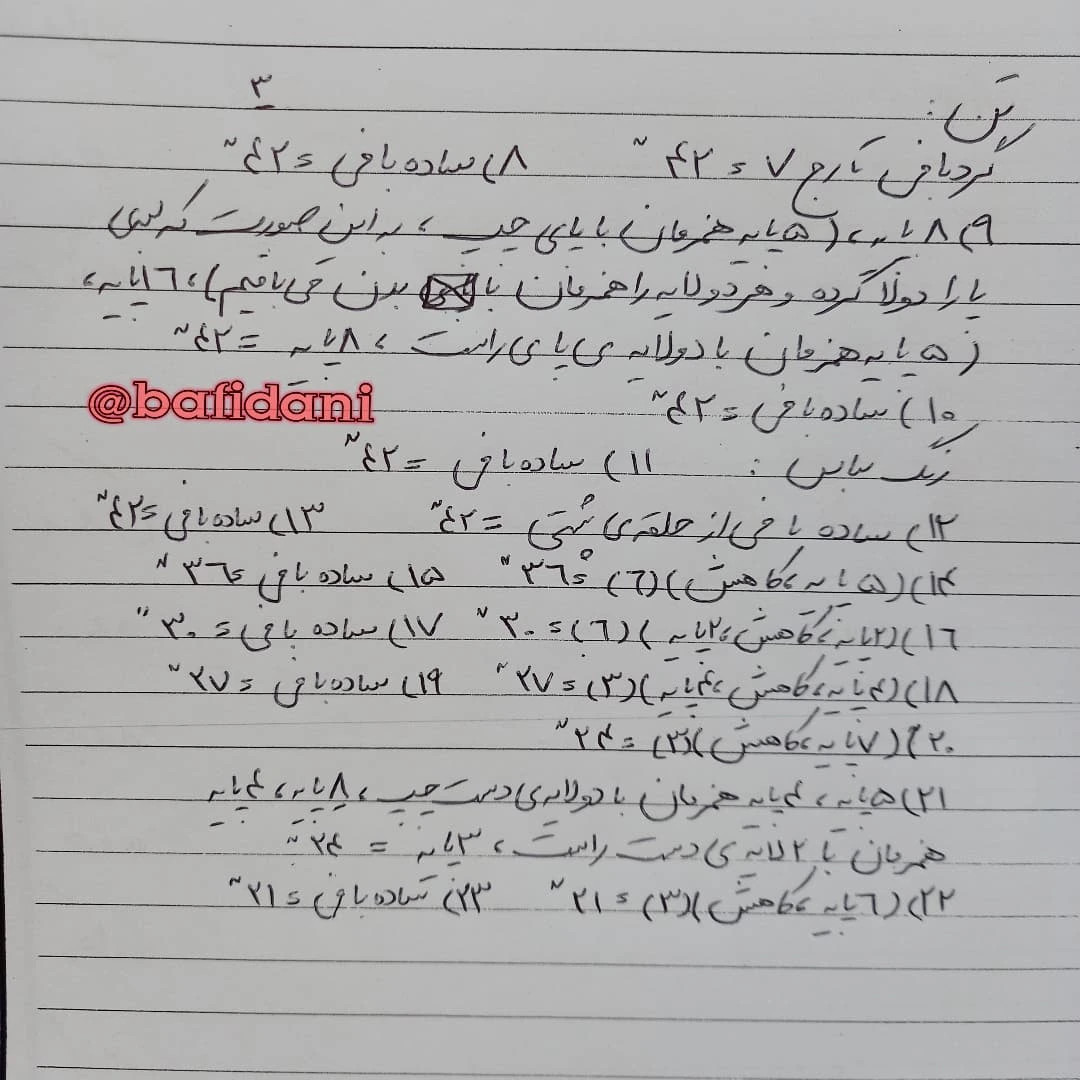 ۳
تن :
گردبافی تا رج ۷ = ۴۲ ~ ۸) ساده بافی = ۴۲ ~
۹) ۸ پایه، (۵ پایه همزمان با پای چپ، به این صورت که لبه‌ی
پا را دولا کرده و هر دو لایه را همزمان با بدن می‌بافیم)، ۱۶ پایه،
(۵ پایه همزمان با دولایه ی پای راست، ۸ پایه = ۴۲ ~
@bafidani
۱۰) ساده بافی = ۴۲ ~
رنگ لباس : ۱۱) ساده بافی = ۴۲ ~
۱۲) ساده بافی از حلقه‌ی پشتی = ۴۲ ~ ۱۳) ساده بافی = ۴۲ ~
۱۴) (۵ پایه، کاهش) (۶) = ۳۶ ~ ۱۵) ساده بافی = ۳۶ ~
۱۶) (۲ پایه، کاهش، ۲ پایه) (۶) = ۳۰ ~ ۱۷) ساده بافی = ۳۰ ~
۱۸) (۴ پایه، کاهش، ۴ پایه) (۳) = ۲۷ ~ ۱۹) ساده بافی = ۲۷ ~
۲۰) (۷ پایه، کاهش) (۳) = ۲۴ ~
۲۱) ۵ پایه، ۴ پایه همزمان با دولایه‌ی دست چپ، ۸ پایه، ۴ پایه
همزمان با ۲ لایه ی دست راست، ۳ پایه = ۲۴ ~
۲۲) (۶ پایه، کاهش) (۳) = ۲۱ ~ ۲۳) ساده بافی = ۲۱ ~